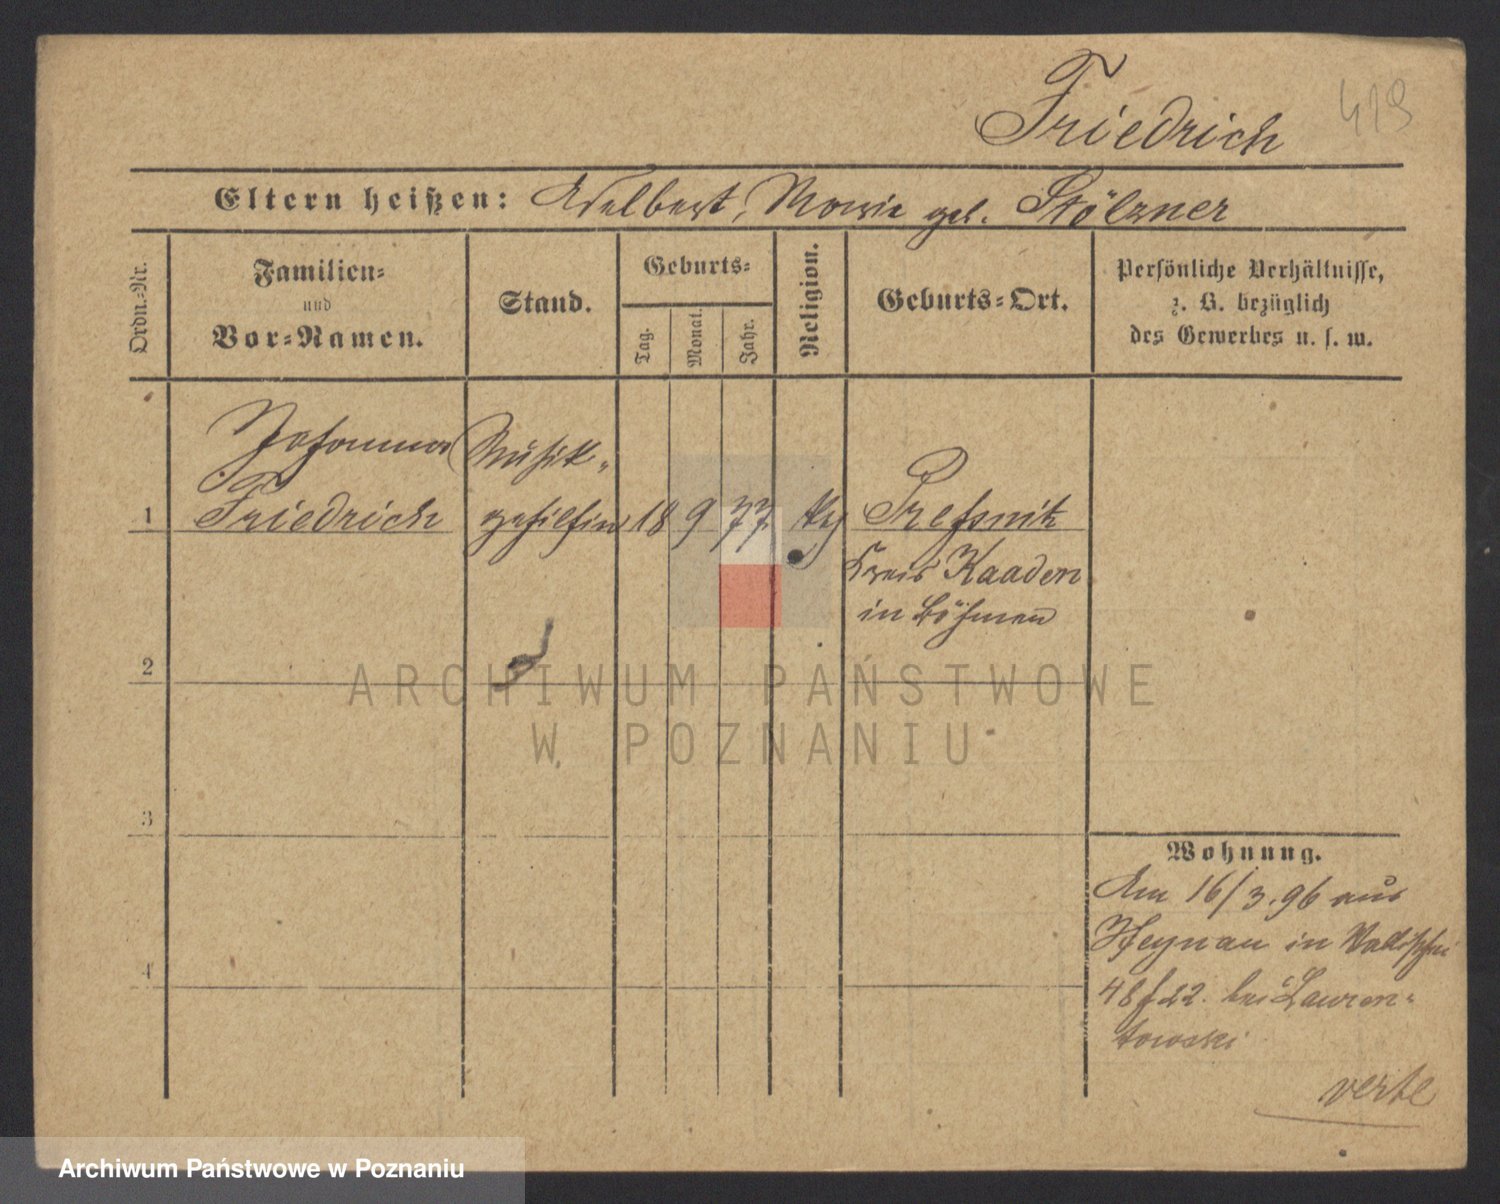 Friedrich
419
Eltern heißen: Adelbert, Marie geb. Stölzner
Ordn.-Nr.
Familien-
und
Vor-Namen.
Stand.
Geburts-
Tag.
Monat.
Jahr.
Religion.
Geburts-Ort.
Persönliche Verhältnisse,
z. B. bezüglich
des Gewerbes u. s. w.
Johanna
Friedrich
Musik-
gehilfin
1
18
9
77
Preßnitz
Kreis Kaaden
in Böhmen
2
3
4
Wohnung.
Am 16/3.96 aus
Heynau in Wallischei
48 f 22. bei Lauren-
towski
verte
ARCHIWUM PAŃSTWOWE
W POZNANIU
Archiwum Państwowe w Poznaniu